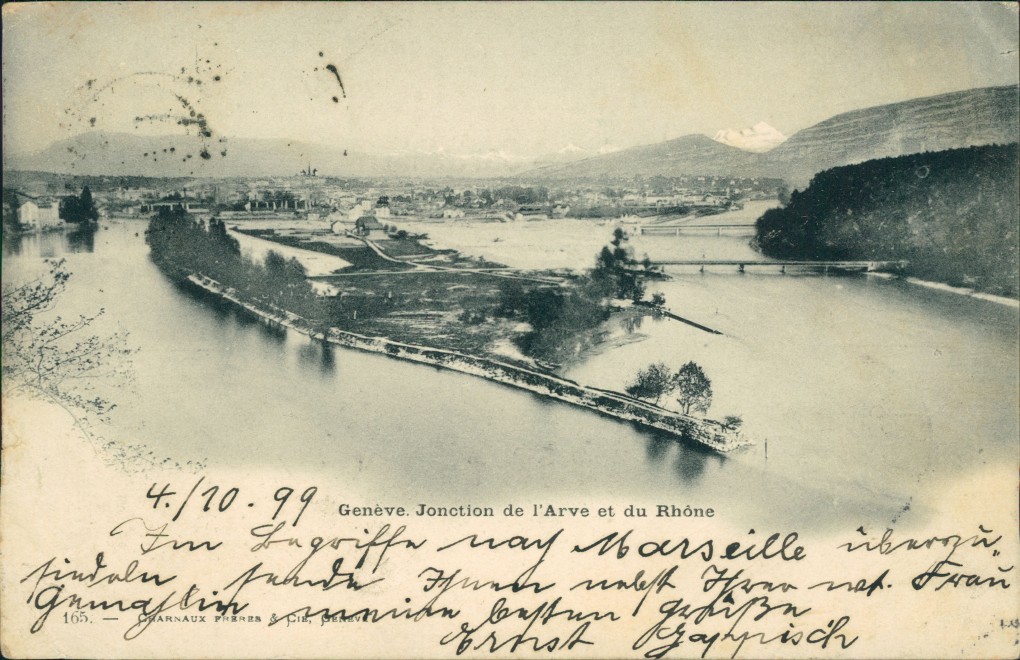 4./10.99
Genève. Jonction de l'Arve et du Rhône
Im Begriffe nach Marseille überzu
siedeln sende Ihnen nebst Ihrer wt. Frau
Gemahlin meine besten Grüße
165. — CHARNAUX FRÈRES & CIE, GENÈVE
Ernst